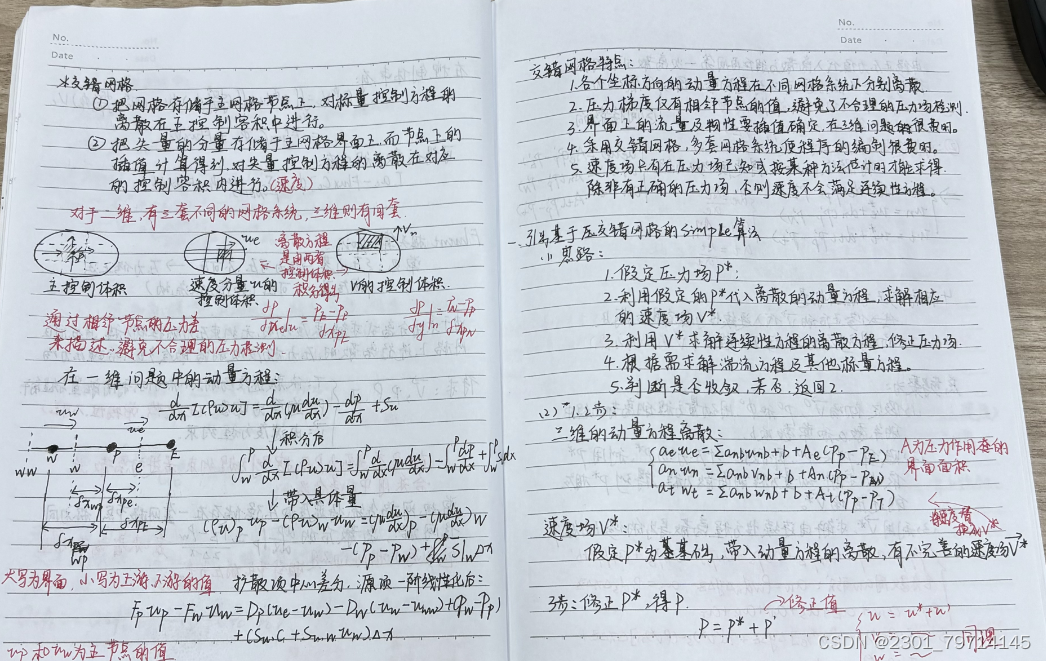 No.
Date
※交错网格
① 把网格存储于主网格节点上，对标量控制方程的
离散在主控制容积中进行。
② 把矢量的分量存储于主网格界面上而节点上的
插值计算得到，对矢量控制方程的离散在对应
的控制容积内进行。(速度)
对于二维，有三套不同的网格系统，三维则有四套
ue
离散方程
是由两者
控制体积
积分得出
Vn
主控制体积
速度分量u的
控制体积
V的控制体积
通过相邻节点的压力差
来描述，避免不合理的压力检测
在一维问题中的动量方程：
d/dx[(ρu)u] = d/dx(μdu/dx) - dp/dx + Su
uw
ue
↓积分后
WW W w P e E
↓带入具体量
(ρu)P uP - (ρu)W uW = (μdu/dx)P - (μdu/dx)W
-(PP - PW) + S|w Δx
大写为界面，小写为上游、下游的值
扩散项中心差分，源项一阶线性化后：
FP uP - FW uW = DP(ue - uw) - DW(uw - uww) + (PW - PP)
+ (Sw.c + Sw.w uw)Δx
uP和uW为主节点的值
No.
Date
交错网格特点：
1.各个坐标方向的动量方程在不同网格系统下分别离散
2.压力梯度仅有相邻节点的值，避免了不合理的压力场检测.
3.界面上的流量及物性要插值确定，在三维问题的很费时。
4.采用交错网格，多套网格系统使程序的编制很费时。
5.速度场只有在压力场已知或按某种方法估计时才能求得.
除非有正确的压力场，否则速度不会满足连续性方程。
一.引出基于压交错网格的Simple算法
(1) 思路：
1.假定压力场P*；
2.利用假定的P*代入离散的动量方程，求解相应
的速度场V*.
3.利用V*求解连续性方程的离散方程，修正压力场.
4.根据需求解湍流方程及其他标量方程。
5.判断是否收敛，若否，返回2.
(2) 1.2步：
三维的动量方程离散：
ae ue = Σanb unb + b + Ae(PP - PE)
an un = Σanb vnb + b + An(PP - PN)
at wt = Σanb wnb + b + At(PP - PT)
A为压力作用态的
界面面积
速度场V*：
速度值
换成V*
假定P*为基基础，带入动量方程的离散，有不完善的速度场V*
3步：修正P*，得P.
→修正值
P = P* + P'
u = u* + u'
同理
CSDN @2301_79714145